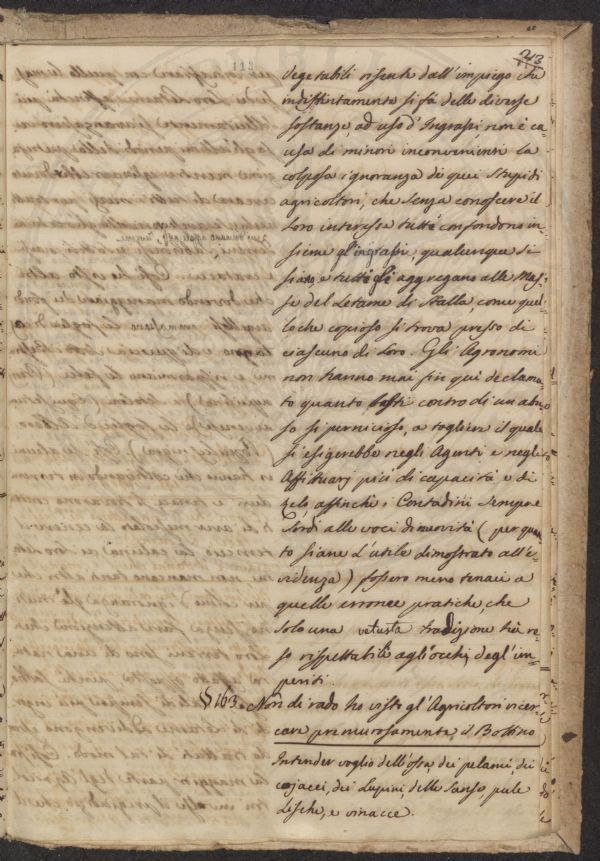 213
113
vegetabili risente dall'impiego che
indistintamente si fà delle diverse
sostanze, ad uso d'Ingrassi non è ca
usa di minori inconvenienti la
colposa ignoranza di quei stupidi
agricoltori, che senza conoscere il
loro interesse tutti confondono in-
sieme gl'ingrassi, qualunque si
siano e tutti gli aggregano alle Mas-
se del Letame di Stalla, come quel
lo che copioso si trova presso di
ciascuno di loro. Gli Agronomi
non hanno mai fin quì declama-
to quanto basti contro di un abu-
so si pernicioso, a togliere il quale
si esigerebbe negli Agenti e negli
Affittuarj più di capacità e di
zelo, affinchè i Contadini sempre
sordi alle voci di novità (per quan
to siane l'utile dimostrato all'e-
videnza) fossero meno tenaci a
quelle erronee pratiche, che
solo una vetusta tradizione hà re-
so rispettabili agli occhi degl'im-
periti.
§ 163. Non di rado ho visto gl'Agricoltori ricer-
care premurosamente il Bottino
Intender voglio dell'ossa, dei pelami, dei
cojacci, dei Lupini, delle Sanse, pule
Lische, e vinacce.